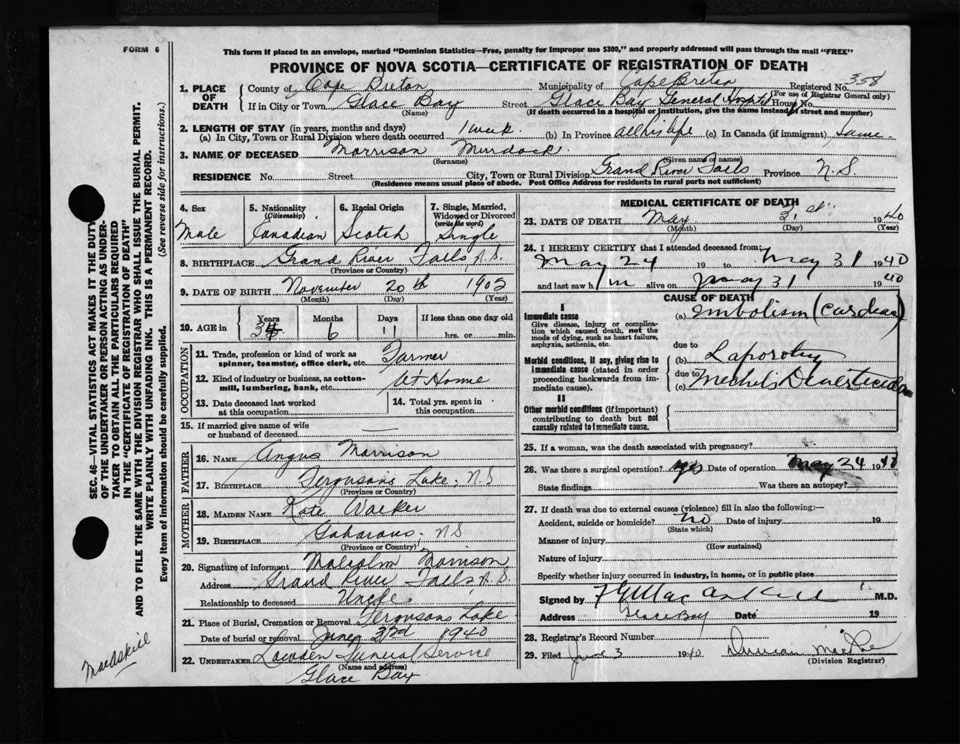 FORM 6
This form if placed in an envelope, marked "Dominion Statistics—Free, penalty for improper use $300," and properly addressed will pass through the mail "FREE"
PROVINCE OF NOVA SCOTIA—CERTIFICATE OF REGISTRATION OF DEATH
1. PLACE OF DEATH County of Cape Breton Municipality of Cape Breton Registered No. 358
(For use of Registrar General only)
If in City or Town Glace Bay Street Glace Bay General Hospital House No.
(Name) (If death occurred in a hospital or institution, give the name instead of street and number)
2. LENGTH OF STAY (in years, months and days)
(a) In City, Town or Rural Division where death occurred 1 week (b) In Province all his life (c) In Canada (if immigrant) same
3. NAME OF DECEASED Morrison Murdock
(Surname) (Given name or names)
RESIDENCE No. Street City, Town or Rural Division Grand River Falls Province N.S.
(Residence means usual place of abode. Post Office Address for residents in rural parts not sufficient)
4. Sex Male
5. Nationality (Citizenship) Canadian
6. Racial Origin Scotch
7. Single, Married, Widowed or Divorced (write the word) Single
8. BIRTHPLACE Grand River Falls N.S.
(Province or Country)
9. DATE OF BIRTH November 20th 1902
(Month) (Day) (Year)
10. AGE in Years Months Days If less than one day old
6 11 hrs. or min.
OCCUPATION
11. Trade, profession or kind of work as spinner, teamster, office clerk, etc. Farmer
12. Kind of industry or business, as cotton-mill, lumbering, bank, etc. At Home
13. Date deceased last worked at this occupation
14. Total yrs. spent in this occupation
15. If married give name of wife or husband of deceased
FATHER
16. NAME Angus Morrison
17. BIRTHPLACE Fergusons Lake N.S
(Province or Country)
MOTHER
18. MAIDEN NAME Kate Walker
19. BIRTHPLACE Gabarous N S
(Province or Country)
20. Signature of informant Malcolm Morrison
Address Grand River Falls N.S.
Relationship to deceased Uncle
21. Place of Burial, Cremation or Removal Fergusons Lake
Date of burial or removal June 3rd 1940
22. UNDERTAKER Lowden Funeral Service
(Name and address)
Glace Bay
MEDICAL CERTIFICATE OF DEATH
23. DATE OF DEATH May 31st 1940
(Month) (Day) (Year)
24. I HEREBY CERTIFY that I attended deceased from:
May 24 19 to May 31 1940
and last saw him alive on May 31 1940
CAUSE OF DEATH
I
Immediate cause
Give disease, injury or complication which caused death, not the mode of dying, such as heart failure, asphyxia, asthenia, etc.
(a) Embolism (Cardiac)
due to
Morbid conditions, if any, giving rise to immediate cause (stated in order proceeding backwards from immediate cause).
(b)
due to
(c)
II
Other morbid conditions (if important) contributing to death but not causally related to immediate cause.
25. If a woman, was the death associated with pregnancy?
26. Was there a surgical operation? yes Date of operation May 24 1940
State findings Was there an autopsy?
27. If death was due to external causes (violence) fill in also the following:—
Accident, suicide or homicide? no Date of injury 19
(State which)
Manner of injury
(How sustained)
Nature of injury
Specify whether injury occurred in industry, in home, or in public place
Signed by M.D.
Address Glace Bay Date 19
28. Registrar's Record Number
29. Filed June 3 1940
(Division Registrar)
SEC. 46—VITAL STATISTICS ACT MAKES IT THE DUTY
OF THE UNDERTAKER OR PERSON ACTING AS UNDER-
TAKER TO OBTAIN ALL THE PARTICULARS REQUIRED
IN THE "CERTIFICATE OF REGISTRATION OF DEATH"
AND TO FILE THE SAME WITH THE DIVISION REGISTRAR WHO SHALL ISSUE THE BURIAL PERMIT.
WRITE PLAINLY WITH UNFADING INK. THIS IS A PERMANENT RECORD.
Every item of information should be carefully supplied. (See reverse side for instructions.)
MacAskill